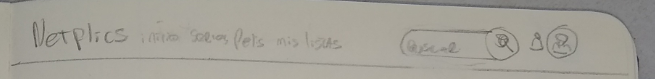 Netplics inicio series Pels mis listas